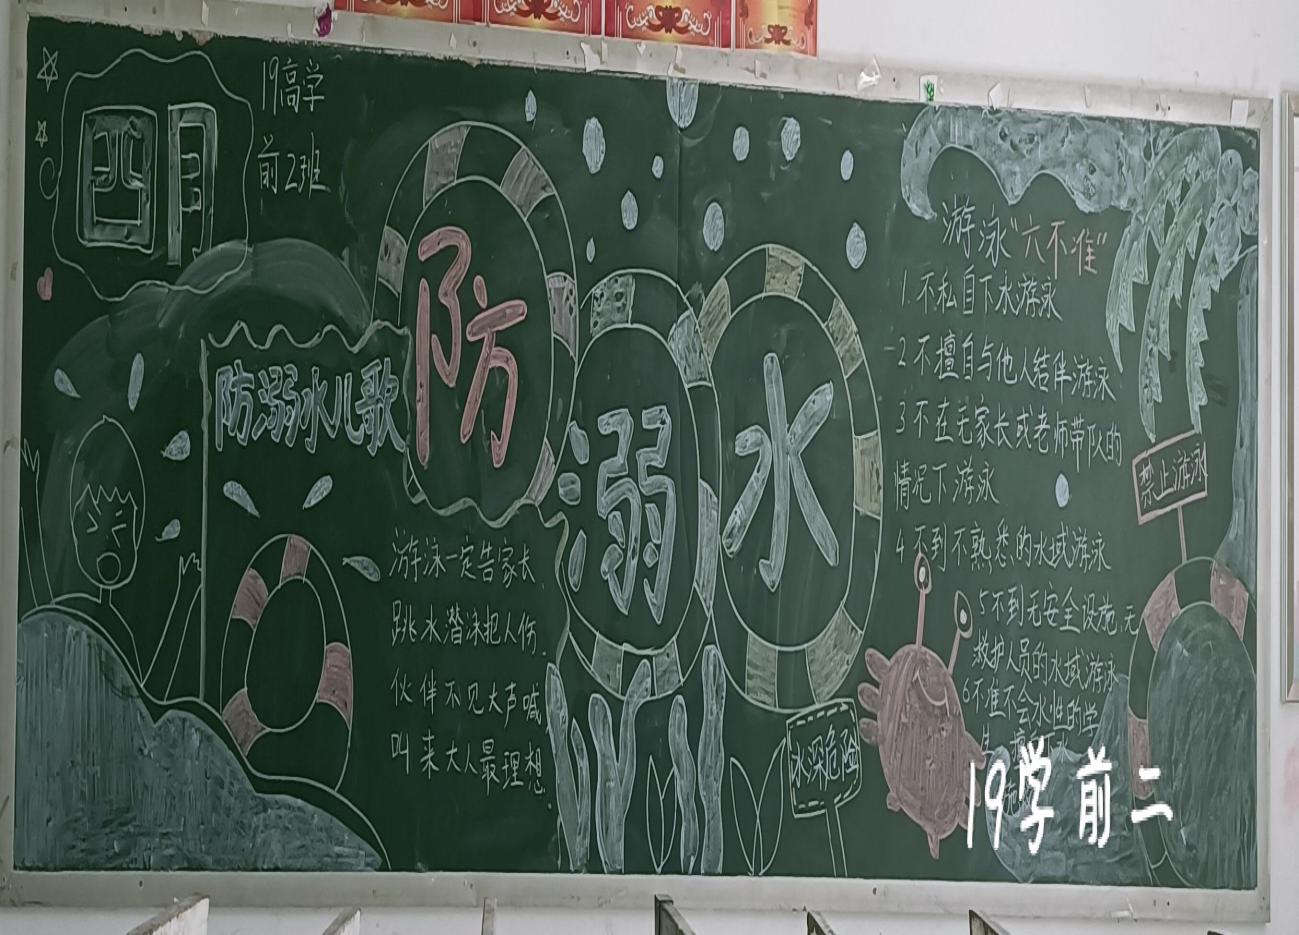 四月
19高学
前2班
防溺水
防溺水儿歌
游泳一定告家长
跳水潜泳把人伤
伙伴不见大声喊
叫来大人最理想
游泳“六不准”
1.不私自下水游泳
2不擅自与他人结伴游泳
3不在无家长或老师带队的
情况下游泳
4不到不熟悉的水域游泳
5不到无安全设施,无
救护人员的水域游泳
6不准不会水性的学
生
禁止游泳
水深危险
19学前二